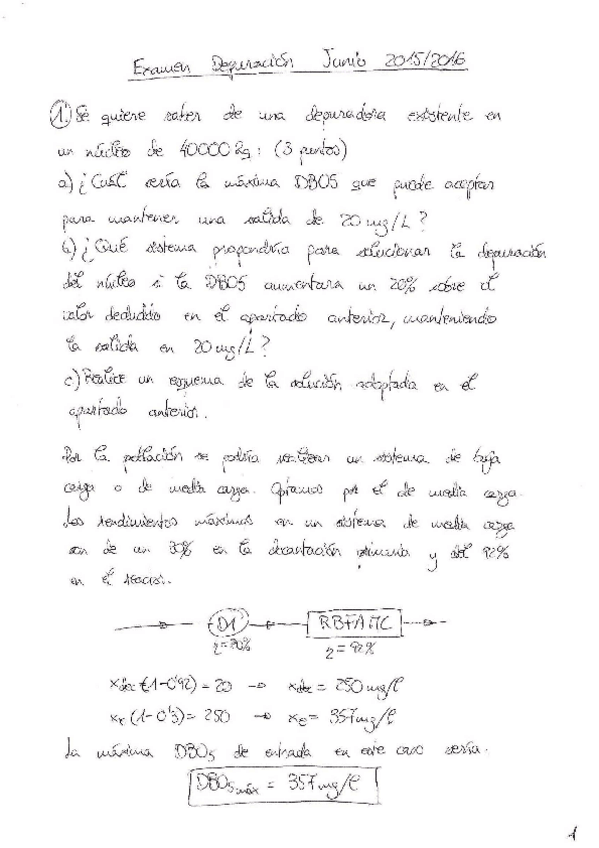 Examen Depuración Junio 2015/2016
1. Se quiere saber de una depuradora existente en
un núcleo de 40000 hg: (3 puntos)
a) ¿Cuál sería la máxima DBO5 que puede aceptar
para mantener una salida de 20 mg/L?
b) ¿Qué sistema propondría para solucionar la depuración
del núcleo si la DBO5 aumentara un 20% sobre el
valor deducido en el apartado anterior, manteniendo
la salida en 20 mg/L?
c) Realice un esquema de la solución adoptada en el
apartado anterior.
Por la población se podría realizar un sistema de baja
carga o de media carga. Optamos por el de media carga.
Los rendimientos máximos en un sistema de media carga
son de un 30% en la decantación primaria y del 92%
en el reactor.
D1 RBFAMC
η=30% η=92%
(1-0'92) = 20 → = 250 mg/l
(1-0'3) = 250 → xe = 357 mg/l
La máxima DBO5 de entrada en este caso sería.
DBO5 máx = 357 mg/l
1